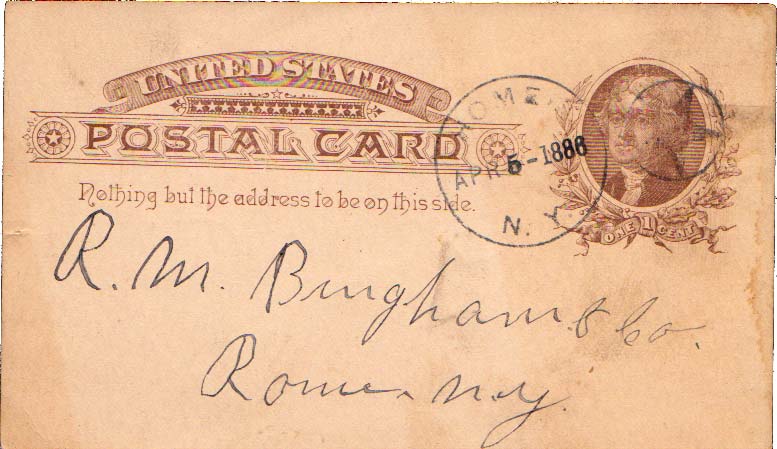 UNITED STATES
POSTAL CARD
Nothing but the address to be on this side.
ROME
APR 5-1886
N. Y.
ONE 1 CENT
R. M. Bingham & Co.
Rome. N.Y.